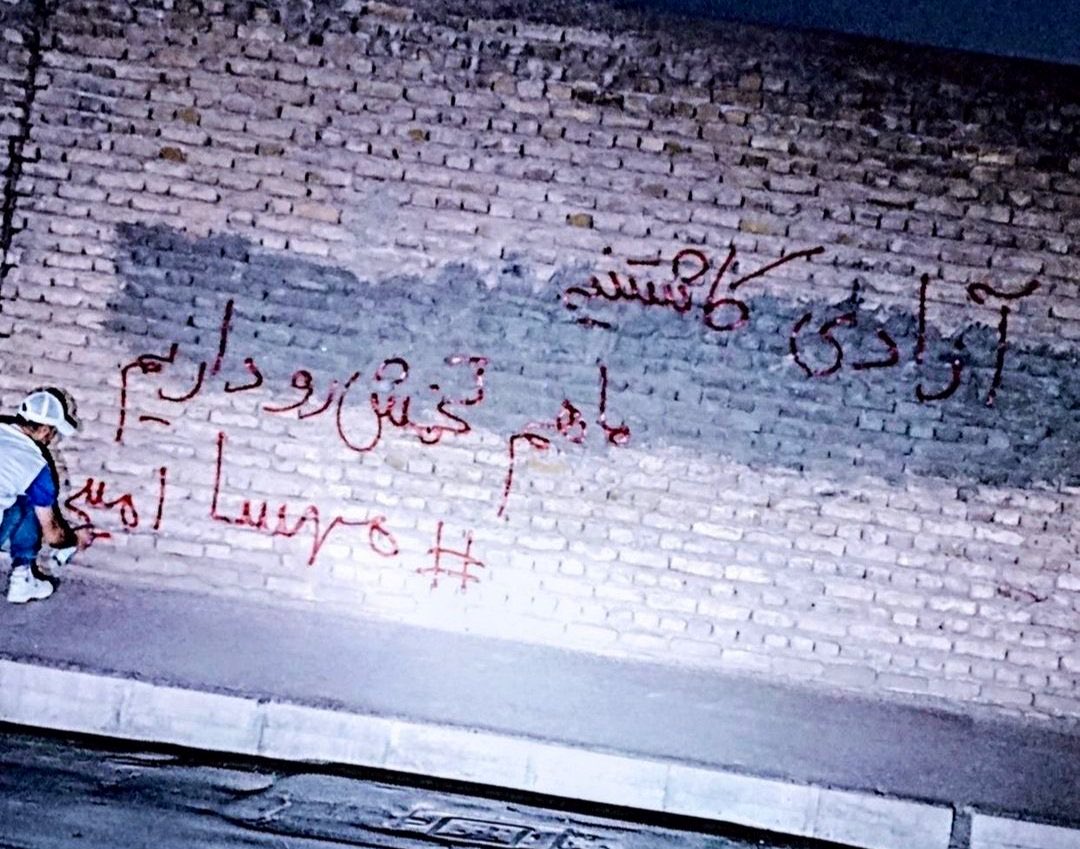 آزادی کاشتنیه
ما هم تخمش رو داریم
# مهسا امینی